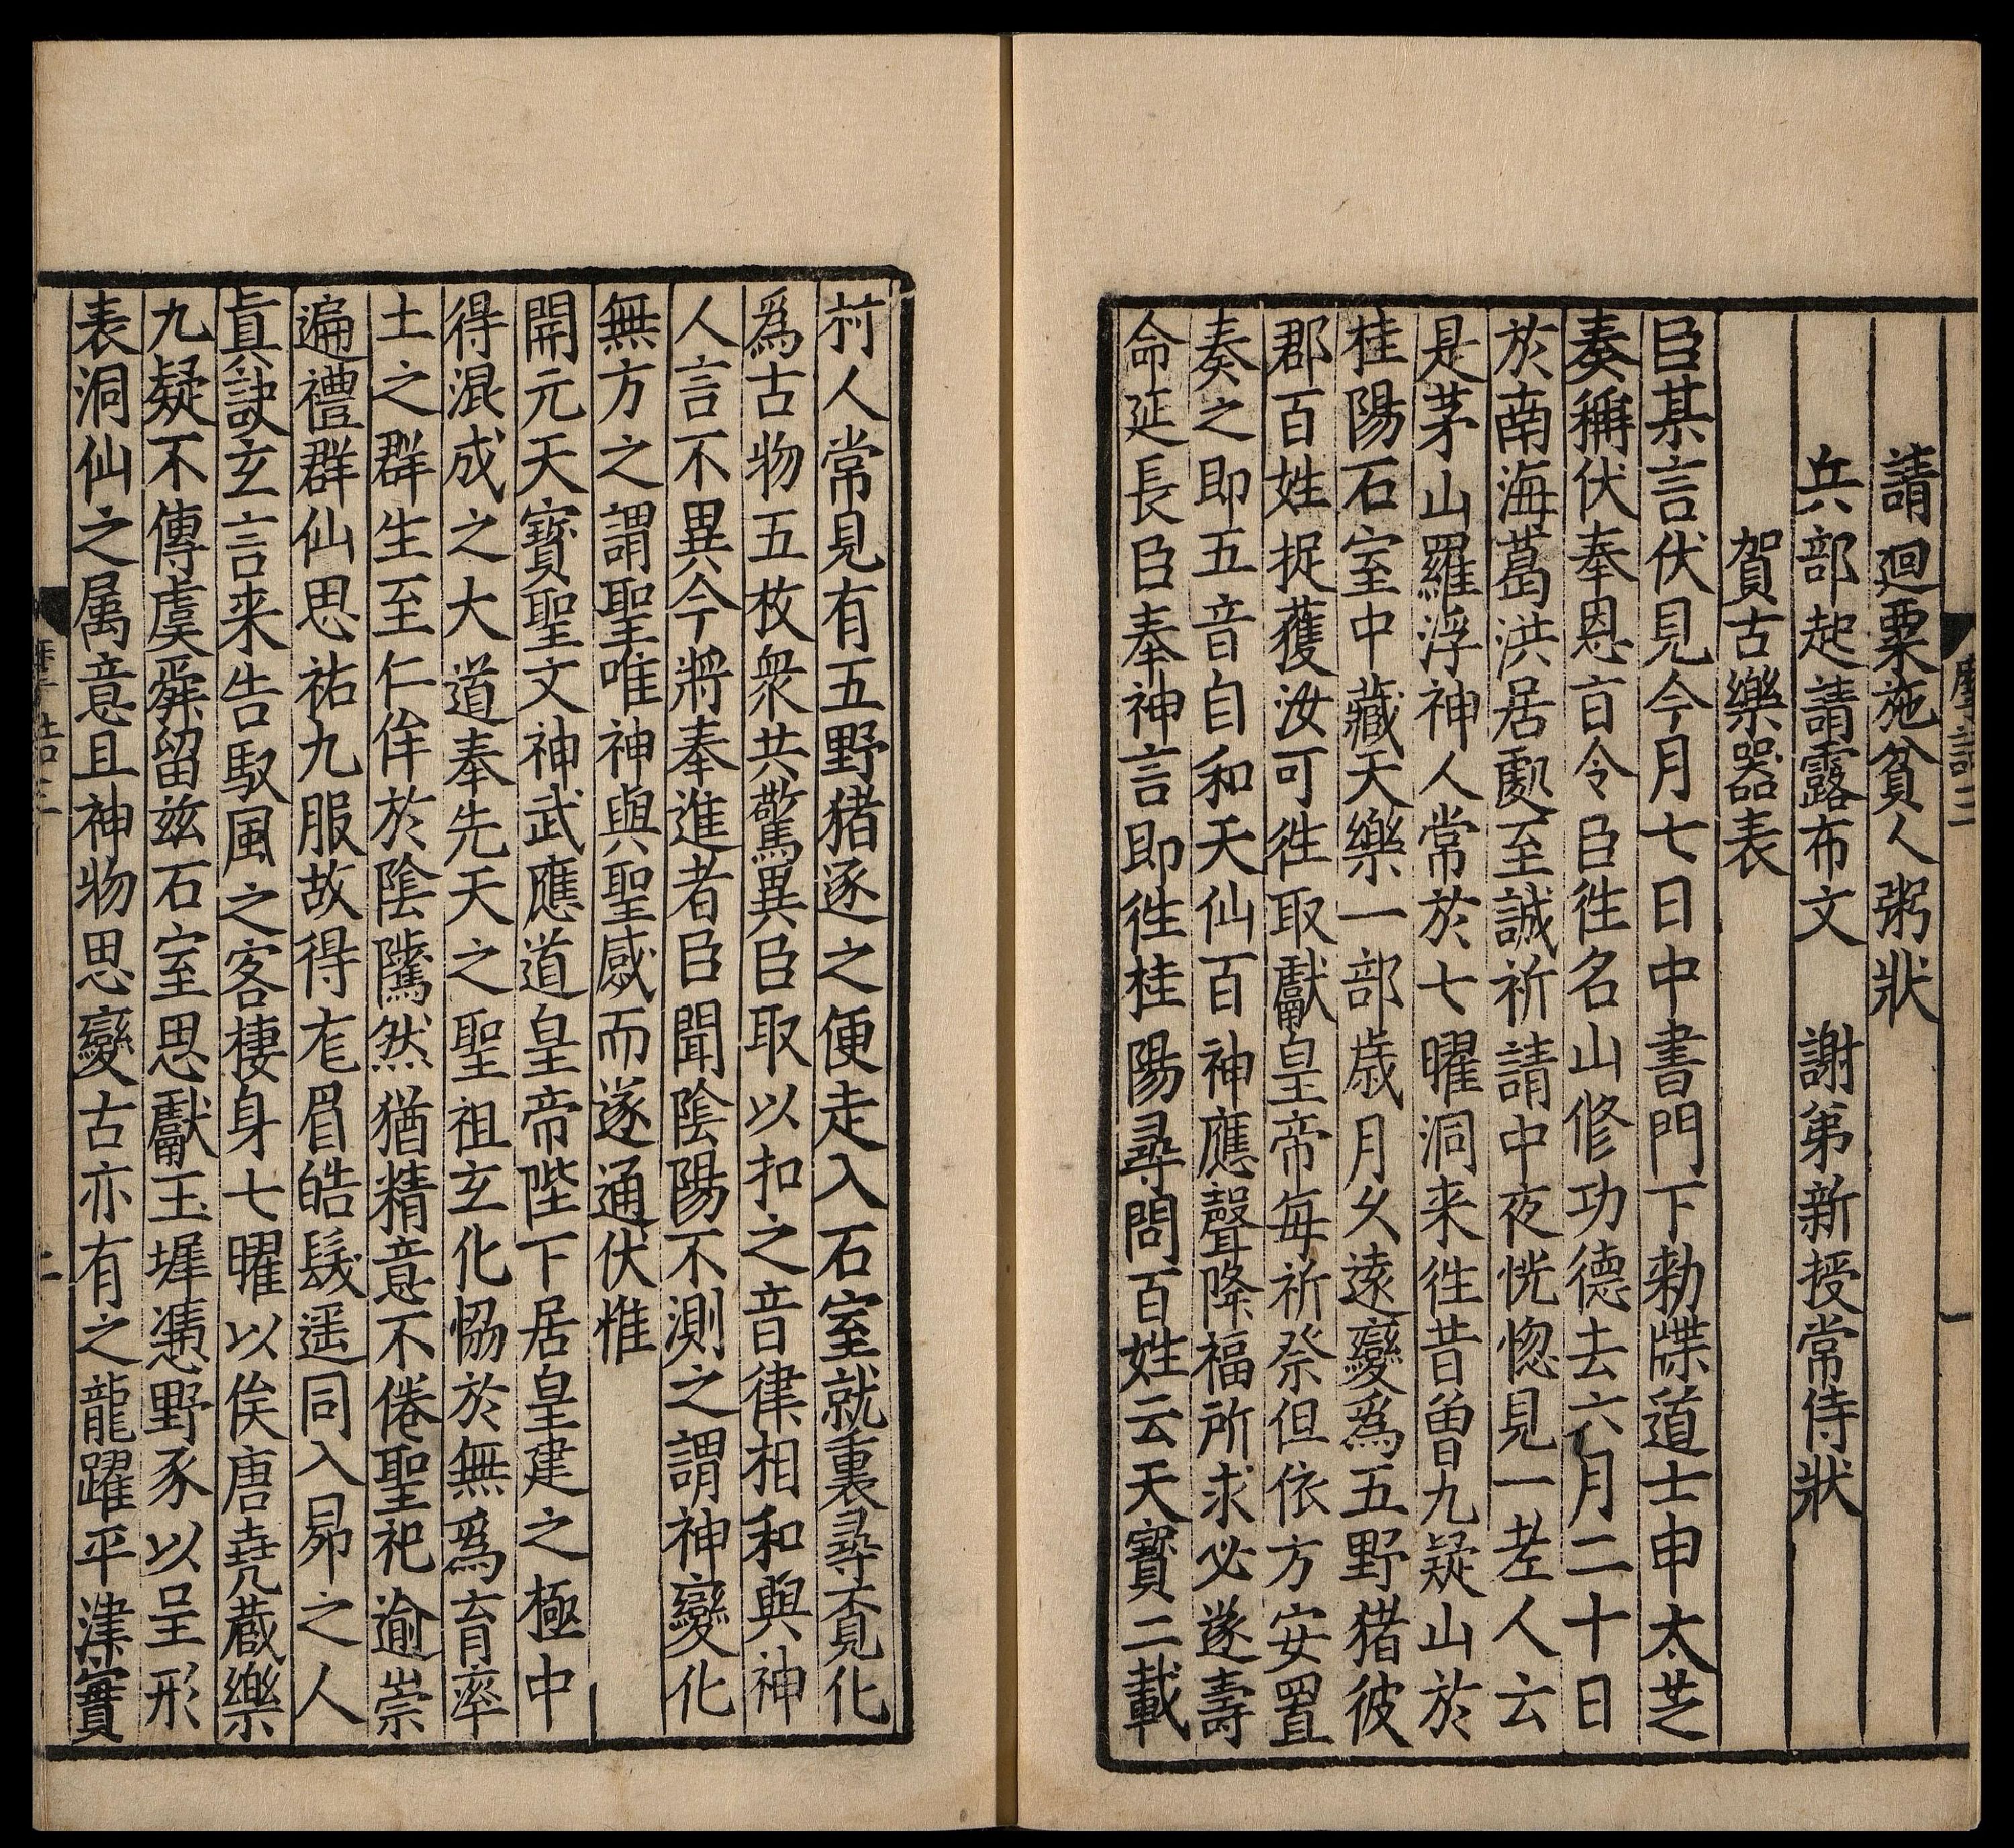 請迴粟施貧人粥狀
兵部起請露布文　謝弟新授常侍狀
賀古樂器表
臣某言伏見今月七日中書門下勑牒道士申太芝
奏稱伏奉恩㫖令臣徃名山修功德去六月二十日
於南海葛洪居處至誠祈請中夜恍惚見一老人云
是茅山羅浮神人常於七曜洞来徃昔曽九疑山於
桂陽石室中藏天樂一部歳月久遠變爲五野猪彼
郡百姓捉獲汝可徃取獻皇帝每祈祭但依方安置
奏之即五音自和天仙百神應聲降福所求必遂壽
命延長臣奉神言即徃桂陽尋問百姓云天寳二載
村人常見有五野猪逐之便走入石室就裏尋覔化
爲古物五枚衆共驚異臣取以扣之音律相和與神
人言不異今將奉進者臣聞陰陽不測之謂神變化
無方之謂聖唯神與聖感而遂通伏惟
開元天寳聖文神武應道皇帝陛下居皇建之極中
得混成之大道奉先天之聖祖玄化恊於無爲育率
土之群生至仁侔於陰騭然猶精意不倦聖祀逾崇
遍禮群仙思祐九服故得厖眉皓髮遥同入昴之人
真訣玄言来告馭風之客棲身七曜以俟唐堯蔵樂
九疑不傳虞舜留兹石室思獻玉墀慿野豕以呈形
表洞仙之属意且神物思變古亦有之龍躍平津寳